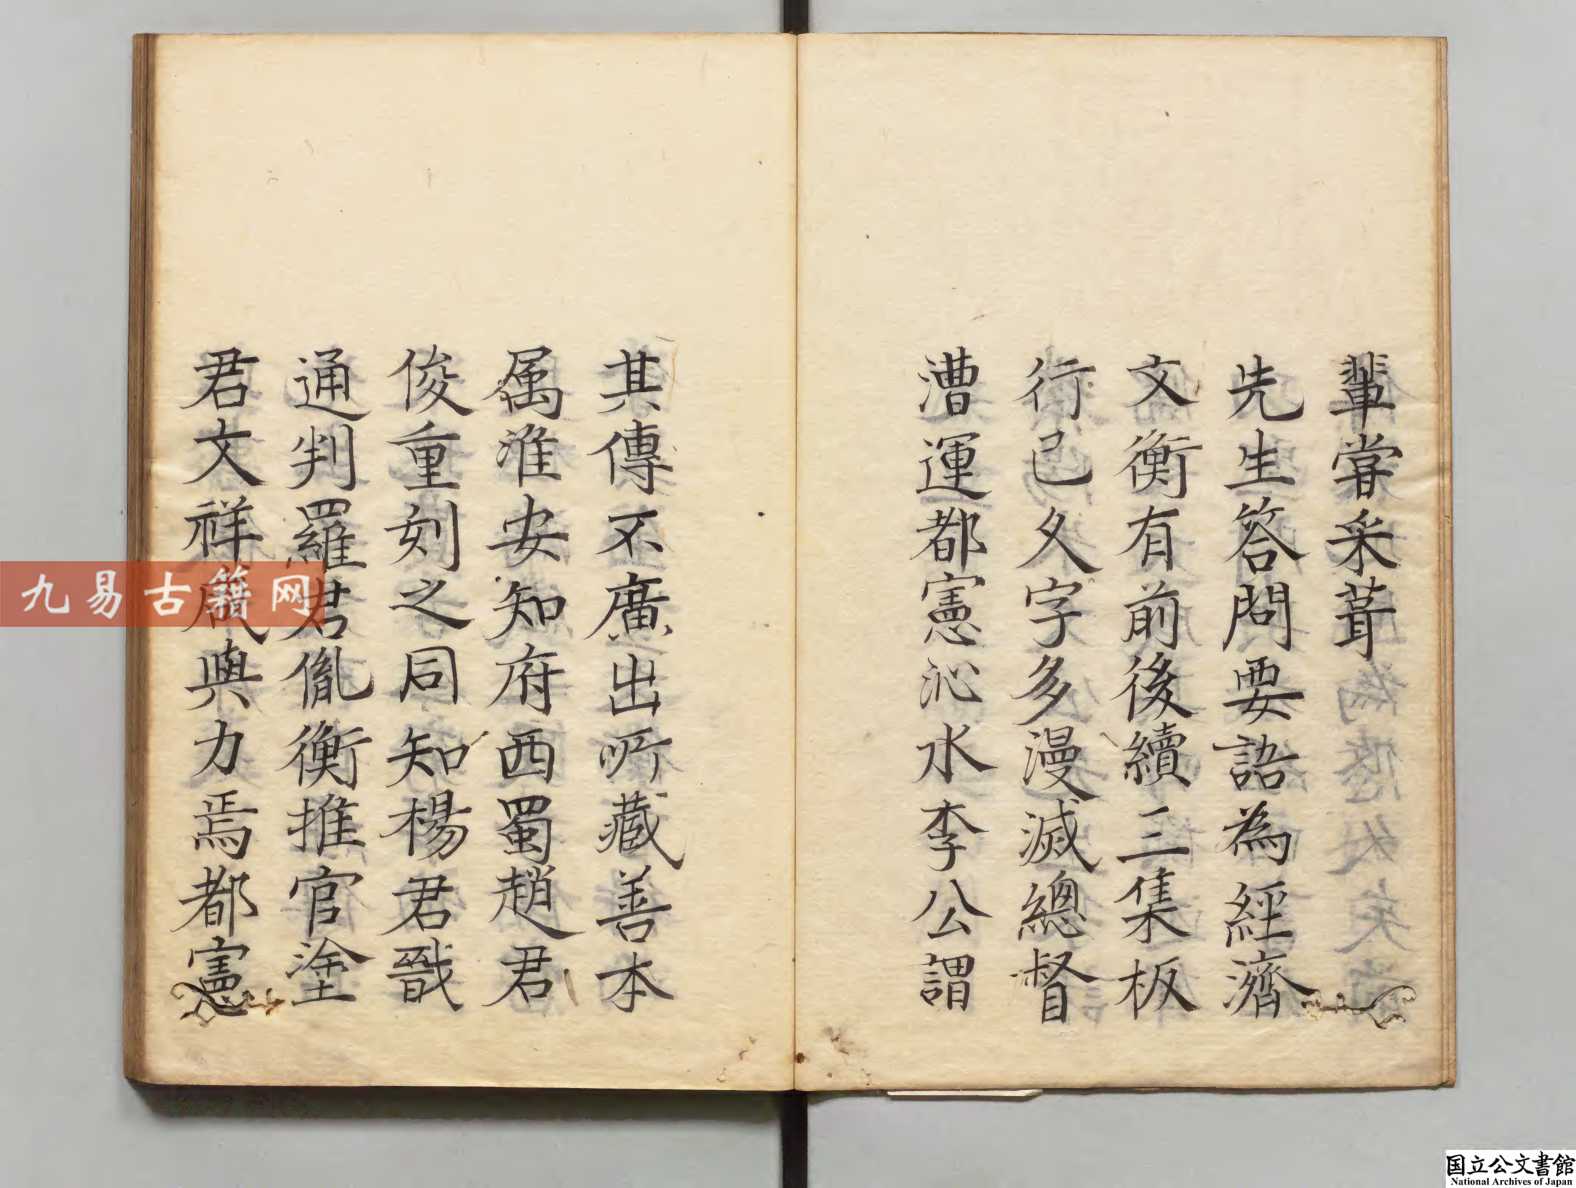 輩嘗采葺
先生答問要語為經濟
文衡有前後續三集板
行已久字多漫滅總督
漕運都憲沁水李公謂
其傳不廣出所藏善本
属淮安知府西蜀趙君
俊重刻之同知楊君戩
通判羅君胤衡推官塗
君文祥咸與力焉都憲
九易古籍网
国立公文書館
National Archives of Japan